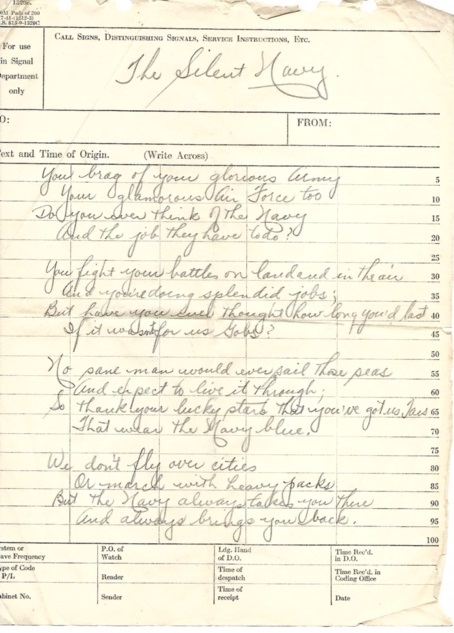 Pads of 200
For use
in Signal
Department
only
CALL SIGNS, DISTINGUISHING SIGNALS, SERVICE INSTRUCTIONS, ETC.
The Silent Navy.
FROM:
Text and Time of Origin. (Write Across)
You brag of your glorious Army 5
Your glamorous Air Force too 10
Do you ever think of the Navy 15
And the job they have to do? 20
25
You fight your battles on land and in the air 30
And you're doing splendid jobs; 35
But have you ever thought how long you'd last 40
If it wasn't for us Gobs? 45
50
No sane man would ever sail those seas 55
And expect to live it through; 60
So thank your lucky stars that you've got us Tars 65
That wear the Navy blue. 70
75
We don't fly over cities 80
Or march with heavy packs 85
But the Navy always takes you there 90
And always brings you back. 95
100
System or
Wave Frequency
P.O. of
Watch
Ldg. Hand
of D.O.
Time Rec'd.
in D.O.
Type of Code
P/L
Reader
Time of
despatch
Time Rec'd. in
Coding Office
Cabinet No.
Sender
Time of
receipt
Date